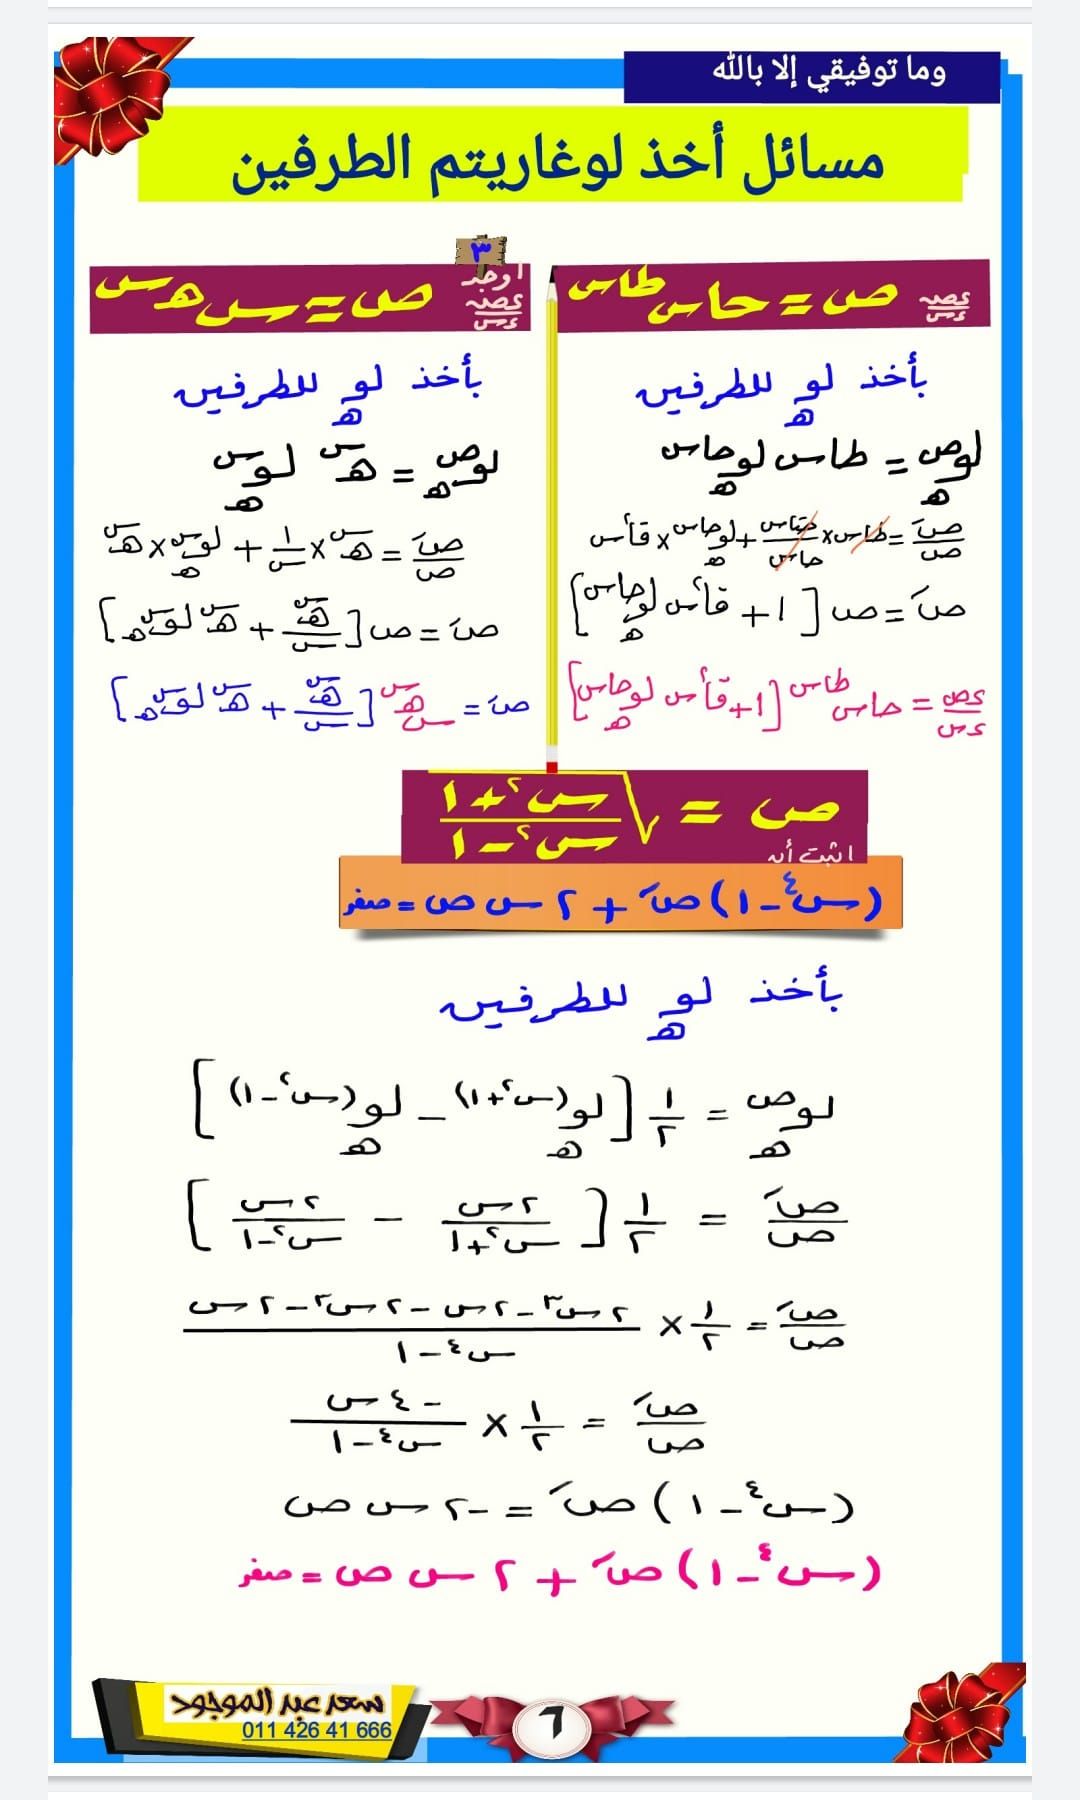 وما توفيقي إلا بالله
مسائل أخذ لوغاريتم الطرفين
ص = حاس^طاس ءص/ءس
بأخذ لو هـ للطرفين
لو هـ ص = طاس لو هـ حاس
صَ/ص = طاس × حتاس/حاس + لو هـ حاس × قا٢س
صَ = ص [١ + قا٢س لو هـ حاس]
ءص/ءس = حاس^طاس [١ + قا٢س لو هـ حاس]
٣
أوجد ءص/ءس ص = س^هـ^س
بأخذ لو هـ للطرفين
لو هـ ص = هـ^س لو هـ س
صَ/ص = هـ^س × ١/س + لو هـ س × هـ^س
صَ = ص [هـ^س/س + هـ^س لو هـ س]
صَ = س^هـ^س [هـ^س/س + هـ^س لو هـ س]
ص = √((س٢ + ١)/(س٢ − ١))
اثبت أن
(س٤ − ١) صَ + ٢ س ص = صفر
بأخذ لو هـ للطرفين
لو هـ ص = ١/٢ [لو هـ (س٢ + ١) − لو هـ (س٢ − ١)]
صَ/ص = ١/٢ [٢س/(س٢ + ١) − ٢س/(س٢ − ١)]
صَ/ص = ١/٢ × (٢س٣ − ٢س − ٢س٣ − ٢س)/(س٤ − ١)
صَ/ص = ١/٢ × −٤س/(س٤ − ١)
(س٤ − ١) صَ = −٢ س ص
(س٤ − ١) صَ + ٢ س ص = صفر
سعد عبد الموجود
011 426 41 666
٦